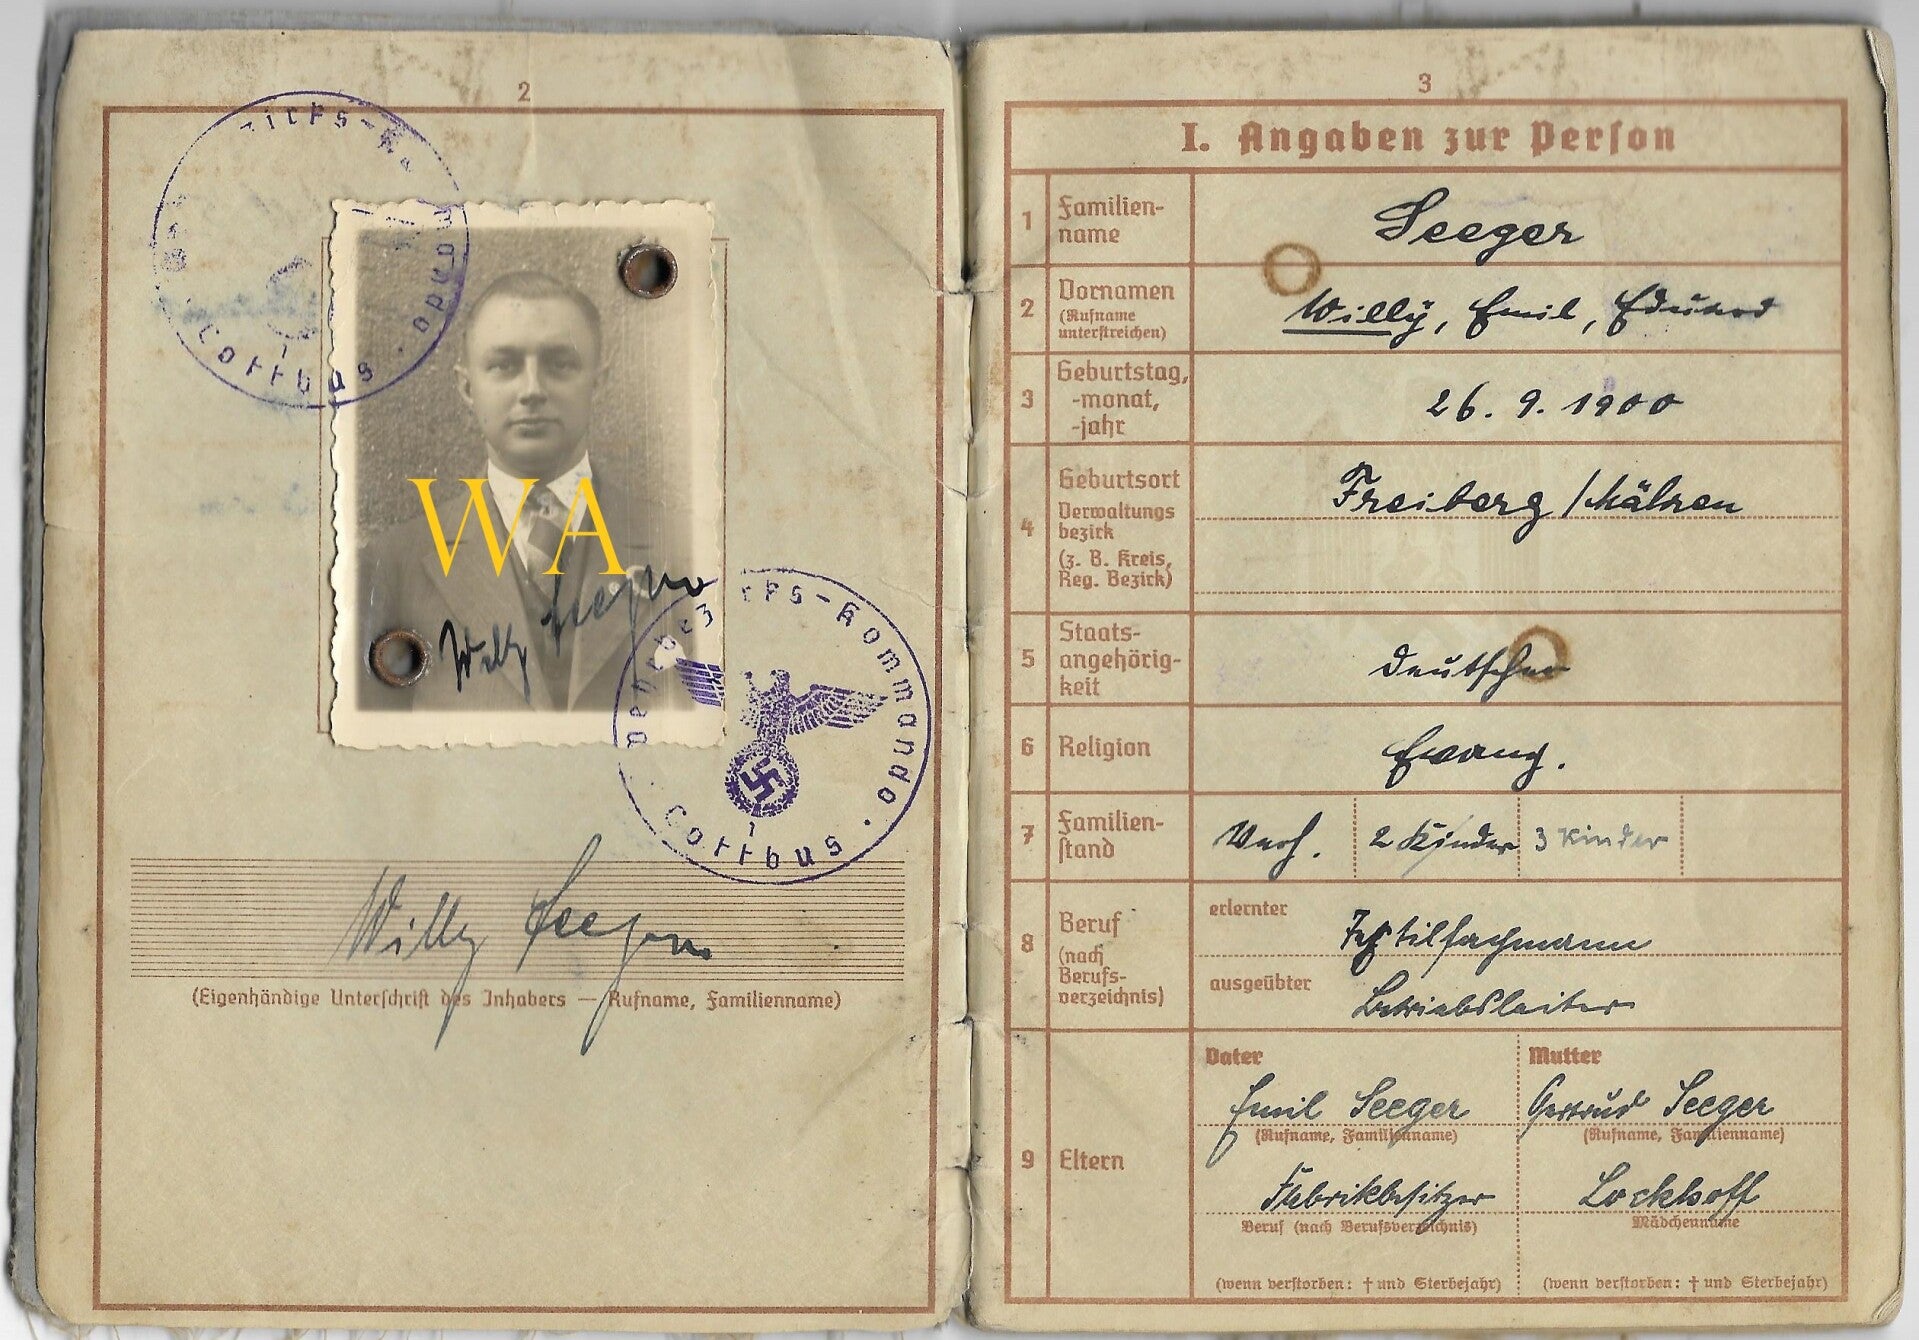 2
Wehrbezirks-Kommando
Cottbus
1
WA
Willy Seeger
Wehrbezirks-Kommando
Cottbus
1
Willy Seeger
(Eigenhändige Unterschrift des Inhabers — Rufname, Familienname)
3
I. Angaben zur Person
1 Familien-
name
Seeger
2 Vornamen
(Rufname
unterstreichen)
Willy, Emil, Eduard
3 Geburtstag,
-monat,
-jahr
26. 9. 1900
4 Geburtsort
Verwaltungs
bezirk
(z. B. Kreis,
Reg. Bezirk)
Freiberg / Mähren
5 Staats-
angehörig-
keit
deutscher
6 Religion
Evang.
7 Familien-
stand
Verh. 2 Kinder 3 Kinder
8 Beruf
(nach
Berufs-
verzeichnis)
erlernter
Textilfachmann
ausgeübter
Betriebsleiter
9 Eltern
Vater
Emil Seeger
(Rufname, Familienname)
Fabrikbesitzer
Beruf (nach Berufsverzeichnis)
(wenn verstorben: † und Sterbejahr)
Mutter
Gertrud Seeger
(Rufname, Familienname)
Lockhoff
Mädchenname
(wenn verstorben: † und Sterbejahr)